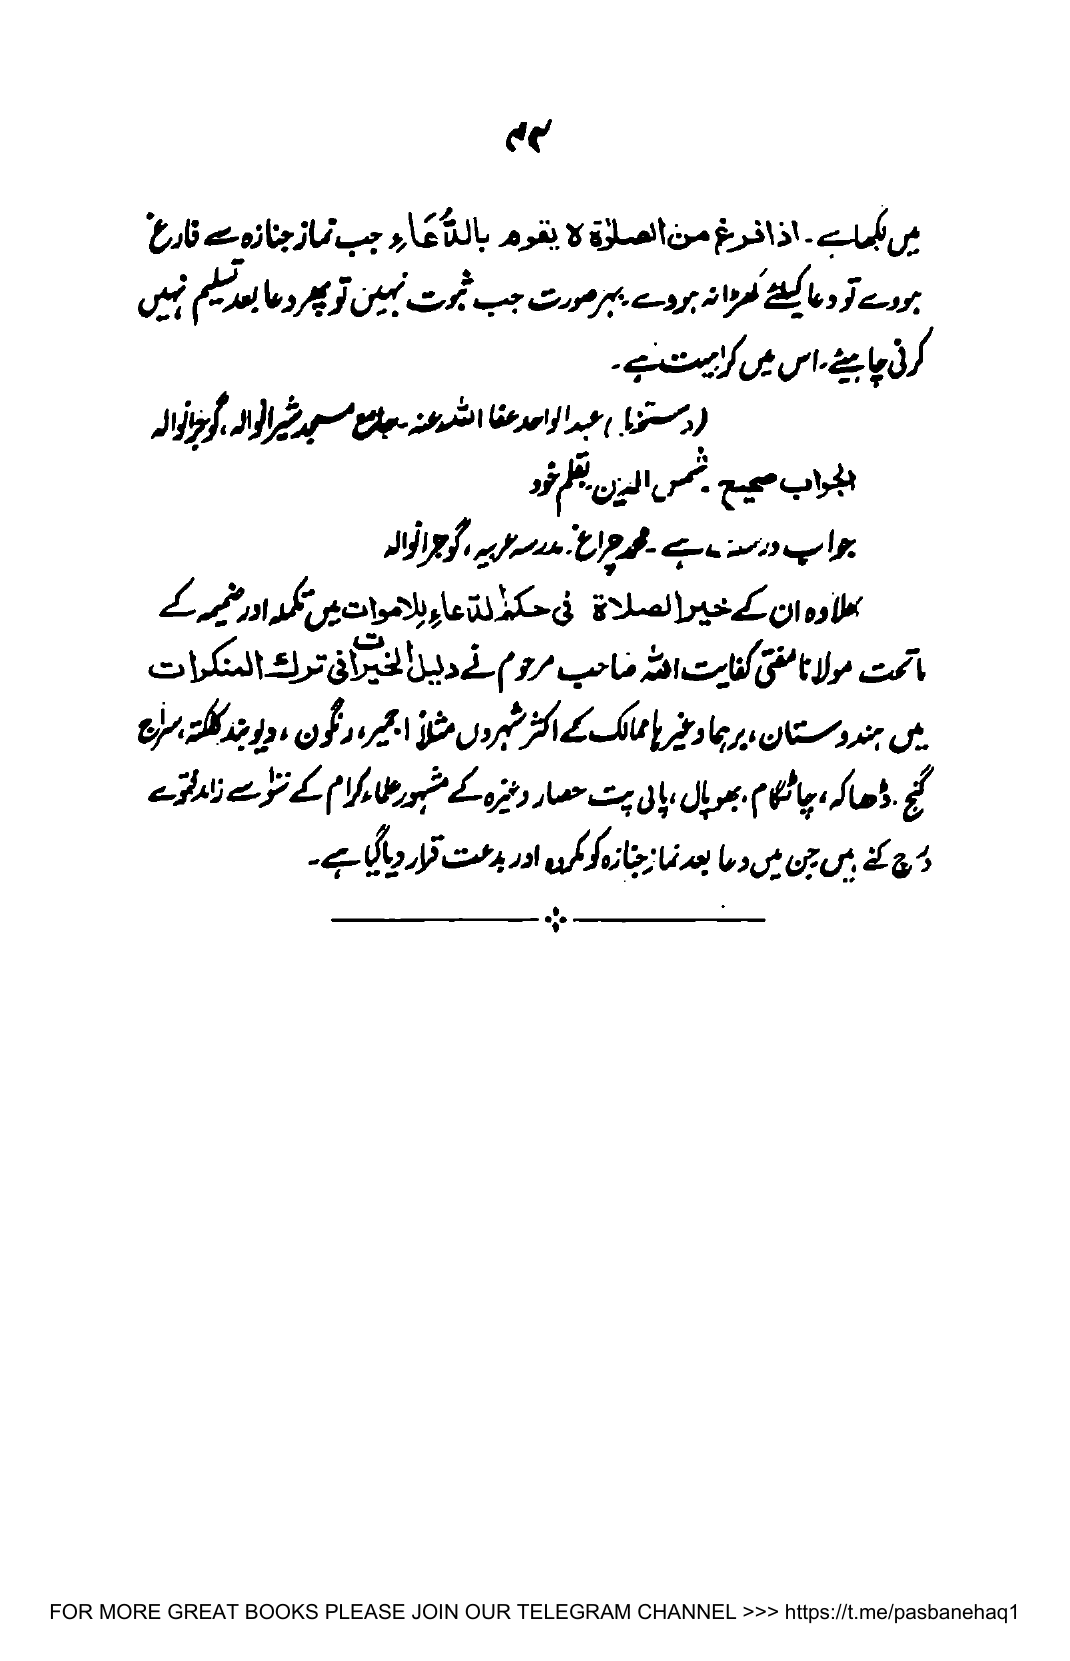 ۴۲
میں لکھا ہے۔ اذا فرغ من الصلوٰۃ لا یقوم بالدُّعَاءِ جب نماز جنازہ سے فارغ
ہووے تو دعا کیلئے کھڑا نہ ہووے۔ بہر صورت جب ثبوت نہیں تو پھر دعا بعد تسلیم نہیں
کرنی چاہیئے۔ اس میں کراہیت ہے۔
(دستخط) عبد الواحد عفا اللہ عنہ۔ جامع مسجد شیرانوالہ، گوجرانوالہ
الجواب صحیح۔ شمس الدین بقلم خود
جواب درست ہے۔ محمد چراغ۔ مدرسہ عربیہ، گوجرانوالہ
علاوہ ان کے خیر الصلاۃ فی حکم الدّعاءِ للاموات میں تکملہ اور ضمیمہ کے
ماتحت مولانا مفتی کفایت اللہ صاحب مرحوم نے دلیل الخیرات فی ترک المنکرات
میں ہندوستان، برہما وغیرہا ممالک کے اکثر شہروں مثلاً اجمیر، رنگون، دیوبند کلکتہ، سراج
گنج۔ ڈھاکہ، چاٹگام، بھوپال، پانی پت حصار وغیرہ کے مشہور علماء کرام کے سَو سے زائد فتوے
درج کئے ہیں جن میں دعا بعد نماز جنازہ کو مکروہ اور بدعت قرار دیا گیا ہے۔
FOR MORE GREAT BOOKS PLEASE JOIN OUR TELEGRAM CHANNEL >>> https://t.me/pasbanehaq1